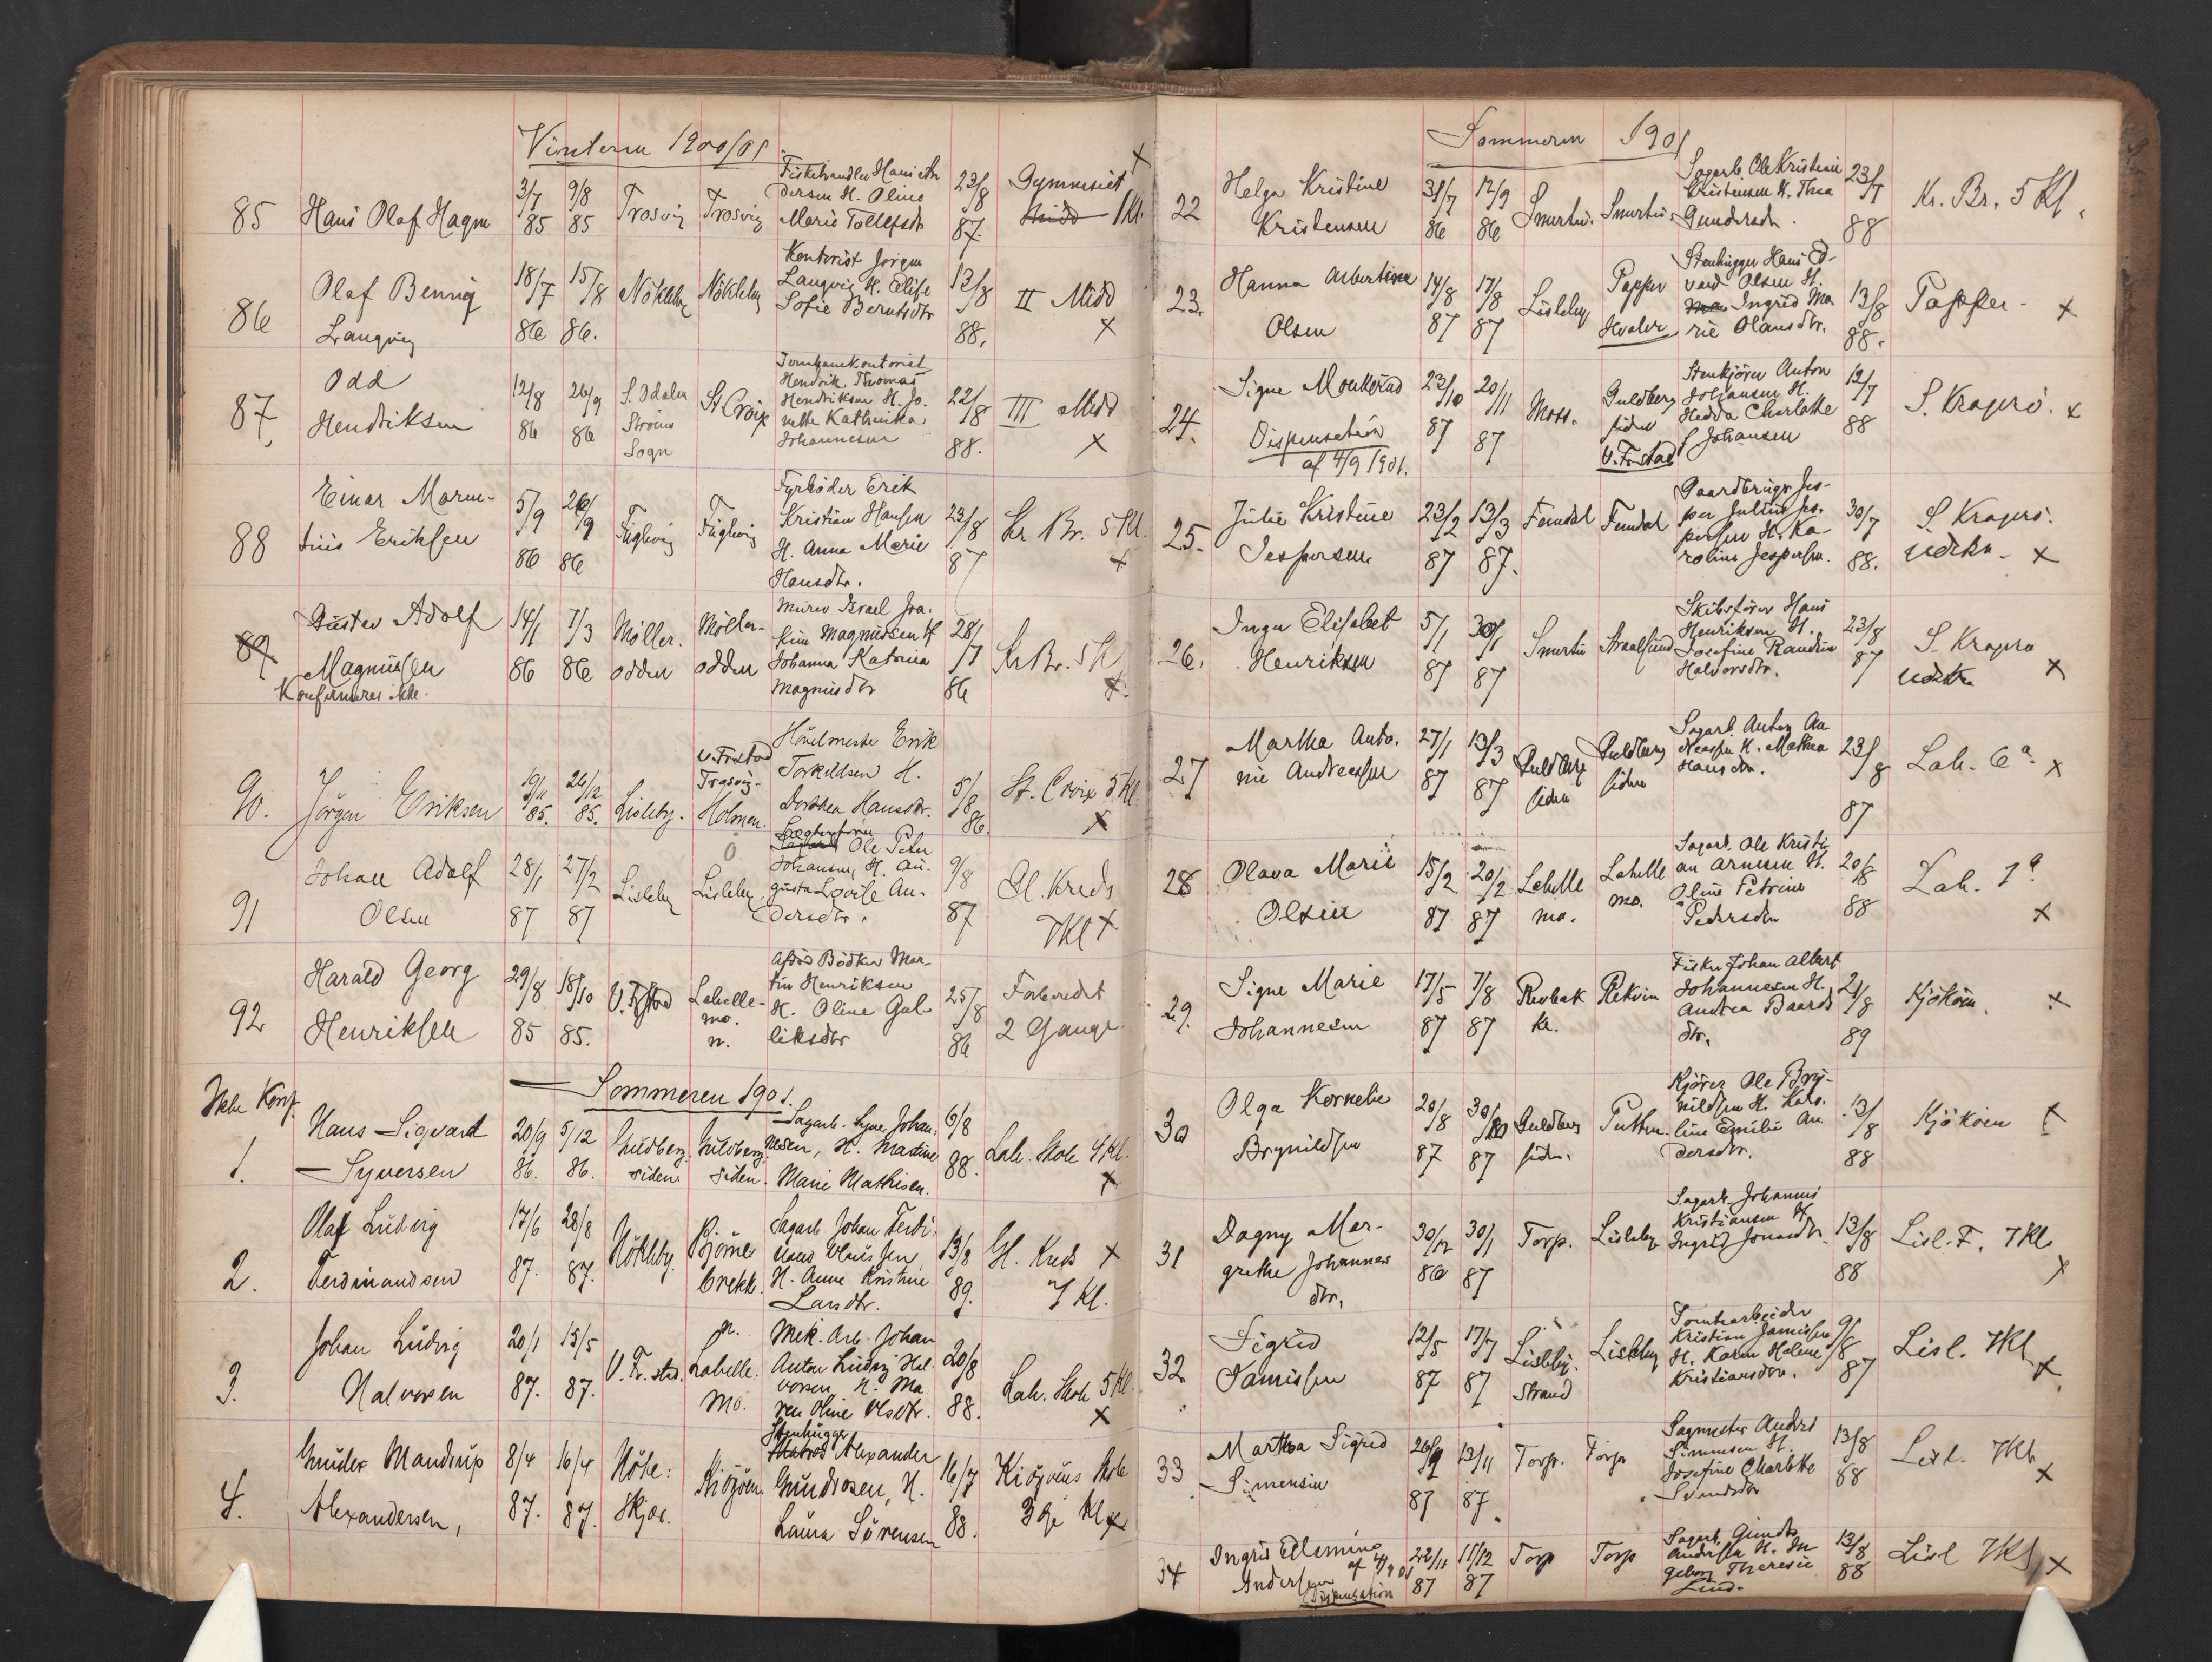 Vinteren 1900/01
85 Hans Olaf Hagen 3/7 85 9/8 85 Trosvig Trosvig
Fiskehandler Hans
dersen H. Oline
Marie Tollefsdtr 23/8 87
Gymnasiet 1 Kl. x
86 Olaf Bennig
Langvig
18/7 86 15/8 86. Nökleby Nökleby
Kontorist Jörgen
Langvig H. Elise
Sofie Berntsdtr 13/8 88.
II Midd x
87 Odd
Hendriksen
12/8 86 26/9 86
S. Odalen
Ströms
Sogn
St. Croix
Jernbanekontorist
Hendrik Thomas
Hendriksen H. Jo-
nette Kathinka
Johannesen 22/8 88.
III Midd x
88 Einar Maren-
tius Eriksen
5/9 86 26/9 86 Fuglevig Fuglevig
Fyrböder Erik
Kristian Hansen
H. Anna Marie
Hansdtr. 23/8 87
Kr. Br. 5 Kl. x
89 Gustav Adolf
Magnussen
Konfirmeres ikke.
14/1 86 7/3 86
Möller-
odden
Möller-
odden
Murer Israel Joa-
kim Magnussen H
Johanna Katrina
Magnusdtr 28/7 86
Kr. Br. 5 Kl x
90. Jörgen Eriksen 19/11 85. 26/12 85. Lisleby.
V. Fr.stad
Trosvig-
Holmen.
Hövelmester Erik
Torkildsen H.
Dorthea Hansdtr. 5/8 86.
St. Croix 5 Kl. x
91 Johan Adolf
Olsen
28/1 87 27/2 87 Lisleby Lisleby.
Ole Peter
Johansen, H. Au-
gusta Lovise An-
dersdtr. 9/8 87
Gl. Kreds
7 Kl x
92 Harald Georg
Henriksen
29/8 85 18/10 85. V. Fr.stad
Labelle-
mo.
n.
Afdöd Bödker Mar-
tin Henriksen
H. Oline Gul-
liksdtr 25/8 86
Forberedt
2 Gange
Ikke Konf.
Sommeren 1901.
1. Hans Sigvard
Syversen
20/9 86. 5/12 86.
Guldberg-
siden
Guldberg-
siden.
Sagarb. Syver Johan-
nesen, H. Mastine
Marie Mathisen. 6/8 88.
Lab. Skole 4 Kl. x
2. Olaf Ludvig
Ferdinandsen
17/6 87. 28/8 87. Nökleby.
Björne
brekk.
Sagarb Johan Ferdi-
nand Olaussen
H. Anne Kristine
Larsdtr. 13/8 89.
Gl. Kreds x
7 Kl.
3. Johan Ludvig
Halvorsen
20/1 87. 15/5 87. V. Fr. stad.
n.
Labelle.
mo.
Mek. Arb. Johan
Anton Ludvig Hal
vorsen H. Ma
ren Oline Olsdtr. 20/8 88.
Lab. Skole 5 Kl. x
4. Gunder Mandrup
Alexandersen,
8/4 87. 16/4 87.
Stenhugger
Alexander
Gundrosen, H.
Laura Sörensen 16/7 88.
3 dje Kl x
Sommeren 1901
22 Helga Kristine
Kristensen
31/7 86 12/9 86 Smertu. Smertu.
Sagarb. Ole Kristian
Kristensen H. Thea
Gundersdtr. 23/7 88
Kr. Br. 5 Kl.
23. Hanna Albertine
Olsen
14/8 87 17/8 87 Lisleby
Papper
Hvaler
Stenhugger Hans Ed-
vard Olsen H.
Ingrid Ma
rie Olausdtr. 13/8 88.
Papper x
24. Signe
Dispensation
af 4/9 1901.
23/10 87 20/11 87 Moss.
Guldberg
siden
V. Fr.stad
Stenkjörer Anton
Johansen H.
Hedda Charlotte
Johansen 12/7 88
S. Kraperö. x
25. Julie Kristine
Jespersen
23/2 87 13/3 87. Femdal Femdal
Gaardbruger Jes-
per Julius Jes-
persen H. Ka-
roline Jespersen. 30/7 88.
S. Kraperö.
udekr. x
26. Inga Elisabet
Henriksen
5/1 87 30/1 87 Smertu Straalsund
Skibsförer Hans
Henriksen H.
Josefine Randine
Halvorsdtr. 23/8 87
S. Kraperö
x
27 Martha Anto-
nie Andreassen
27/1 87 13/3 87
Guldberg
siden
Guldberg
siden
Sagarb. Anton An
dreassen H. Mathea
Hansdtr. 23/8 87
Lab. 6a x
28 Olava Marie
Olsen
15/2 87 20/2 87
Labelle
mo.
Labelle
mo.
Sagarb. Ole Kristi-
an Arnesen H.
Oline Petrine
Pedersdtr 20/8 88
Lab. 7a
x
29. Signe Marie
Johannesen
17/5 87 7/8 87
Fisker Johan Albert
Johannesen H.
Andrea Baards
dtr. 21/8 89
Kjököen. x
30 Olga Kornelie
Brynildsen
20/8 87 30/10 87
Guldberg
siden.
Putten.
Kjörer Ole Bry-
nildsen H. Karo-
line Emilie An
dersdtr. 13/8 88
Kjököen x
31 Dagny Mar-
grethe Johannes
dtr.
30/12 86 30/1 87 Torp. Lisleby
Sagarb. Johannes
Kristiansen H
Ingrid Jonasdtr. 13/8 88
Lisl. F. 7 Kl
x
32 Sigrid
Jamissen
12/5 87 17/7 87
Lisleby.
strand
Lisleby
Tomtearbeider
Kristian Jamissen
H. Karen Helene
Kristiansdtr. 9/8 87
Lisl. 7 Kl
x
33 Martha Sigrid
Simensen
26/9 87 13/11 87. Torp. Torp
Sagmester Anders
Simensen H.
Josefine Charlotte
Svendsdtr 13/8 88
Lisl. 7 Kl.
x
34 Ingrid Elmine
Andersen af 4/9 01
Dispensation
22/11 87 11/12 87 Torp Torp
Sagarb. Gunder
Andersen H. In
geborg Theresie
Lind. 13/8 88
Lisl 7 Kl x